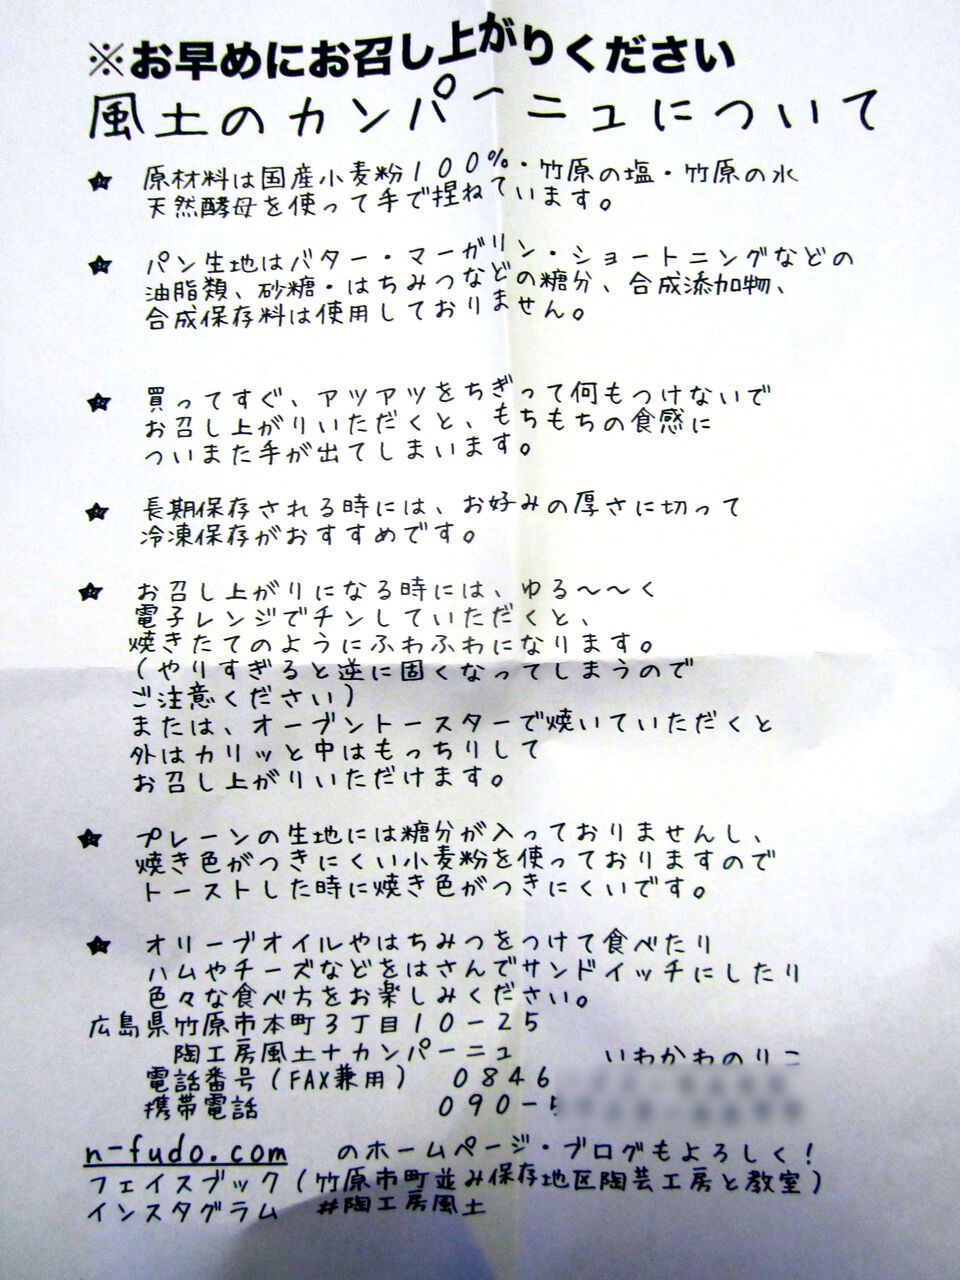 ※お早めにお召し上がりください
風土のカンパーニュについて
★ 原材料は国産小麦粉100%・竹原の塩・竹原の水
天然酵母を使って手で捏ねています。
★ パン生地はバター・マーガリン・ショートニングなどの
油脂類、砂糖・はちみつなどの糖分、合成添加物、
合成保存料は使用しておりません。
★ 買ってすぐ、アツアツをちぎって何もつけないで
お召し上がりいただくと、もちもちの食感に
ついまた手が出てしまいます。
★ 長期保存される時には、お好みの厚さに切って
冷凍保存がおすすめです。
★ お召し上がりになる時には、ゆる〜〜く
電子レンジでチンしていただくと、
焼きたてのようにふわふわになります。
(やりすぎると逆に固くなってしまうので
ご注意ください)
または、オーブントースターで焼いていただくと
外はカリッと中はもっちりして
お召し上がりいただけます。
★ プレーンの生地には糖分が入っておりませんし、
焼き色がつきにくい小麦粉を使っておりますので
トーストした時に焼き色がつきにくいです。
★ オリーブオイルやはちみつをつけて食べたり
ハムやチーズなどをはさんでサンドイッチにしたり
色々な食べ方をお楽しみください。
広島県竹原市本町3丁目10-25
陶工房風土+カンパーニュ いわかわのりこ
電話番号(FAX兼用) 0846
携帯電話 090-5
n-fudo.com のホームページ・ブログもよろしく!
フェイスブック(竹原市町並み保存地区陶芸工房と教室)
インスタグラム #陶工房風土